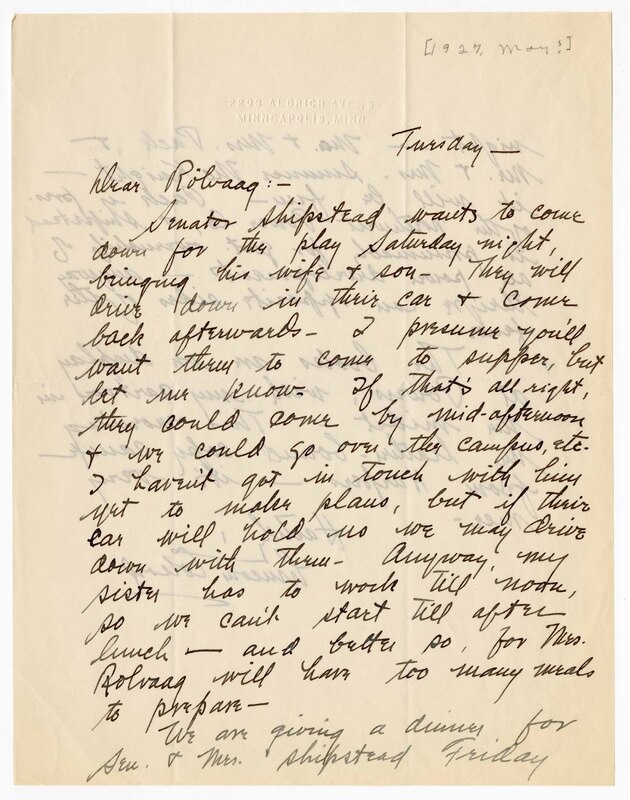 [1927, May?]
2203 ALDRICH AVE., S.
MINNEAPOLIS, MINN.
Tuesday—
Dear Rölvaag:-
Senator Shipstead wants to come
down for the play Saturday night,
bringing his wife & son- They will
drive down in their car & come
back afterwards- I presume you'll
want them to come to supper, but
let me know. If that's all right,
they could come by mid-afternoon
& we could go over the campus, etc.
I haven't got in touch with him
yet to make plans, but if their
car will hold us we may drive
down with them- Anyway, my
sister has to work till noon,
so we can't start till after
lunch — and better so, for Mrs.
Rölvaag will have too many meals
to prepare—
We are giving a dinner for
Sen. & Mrs. Shipstead Friday